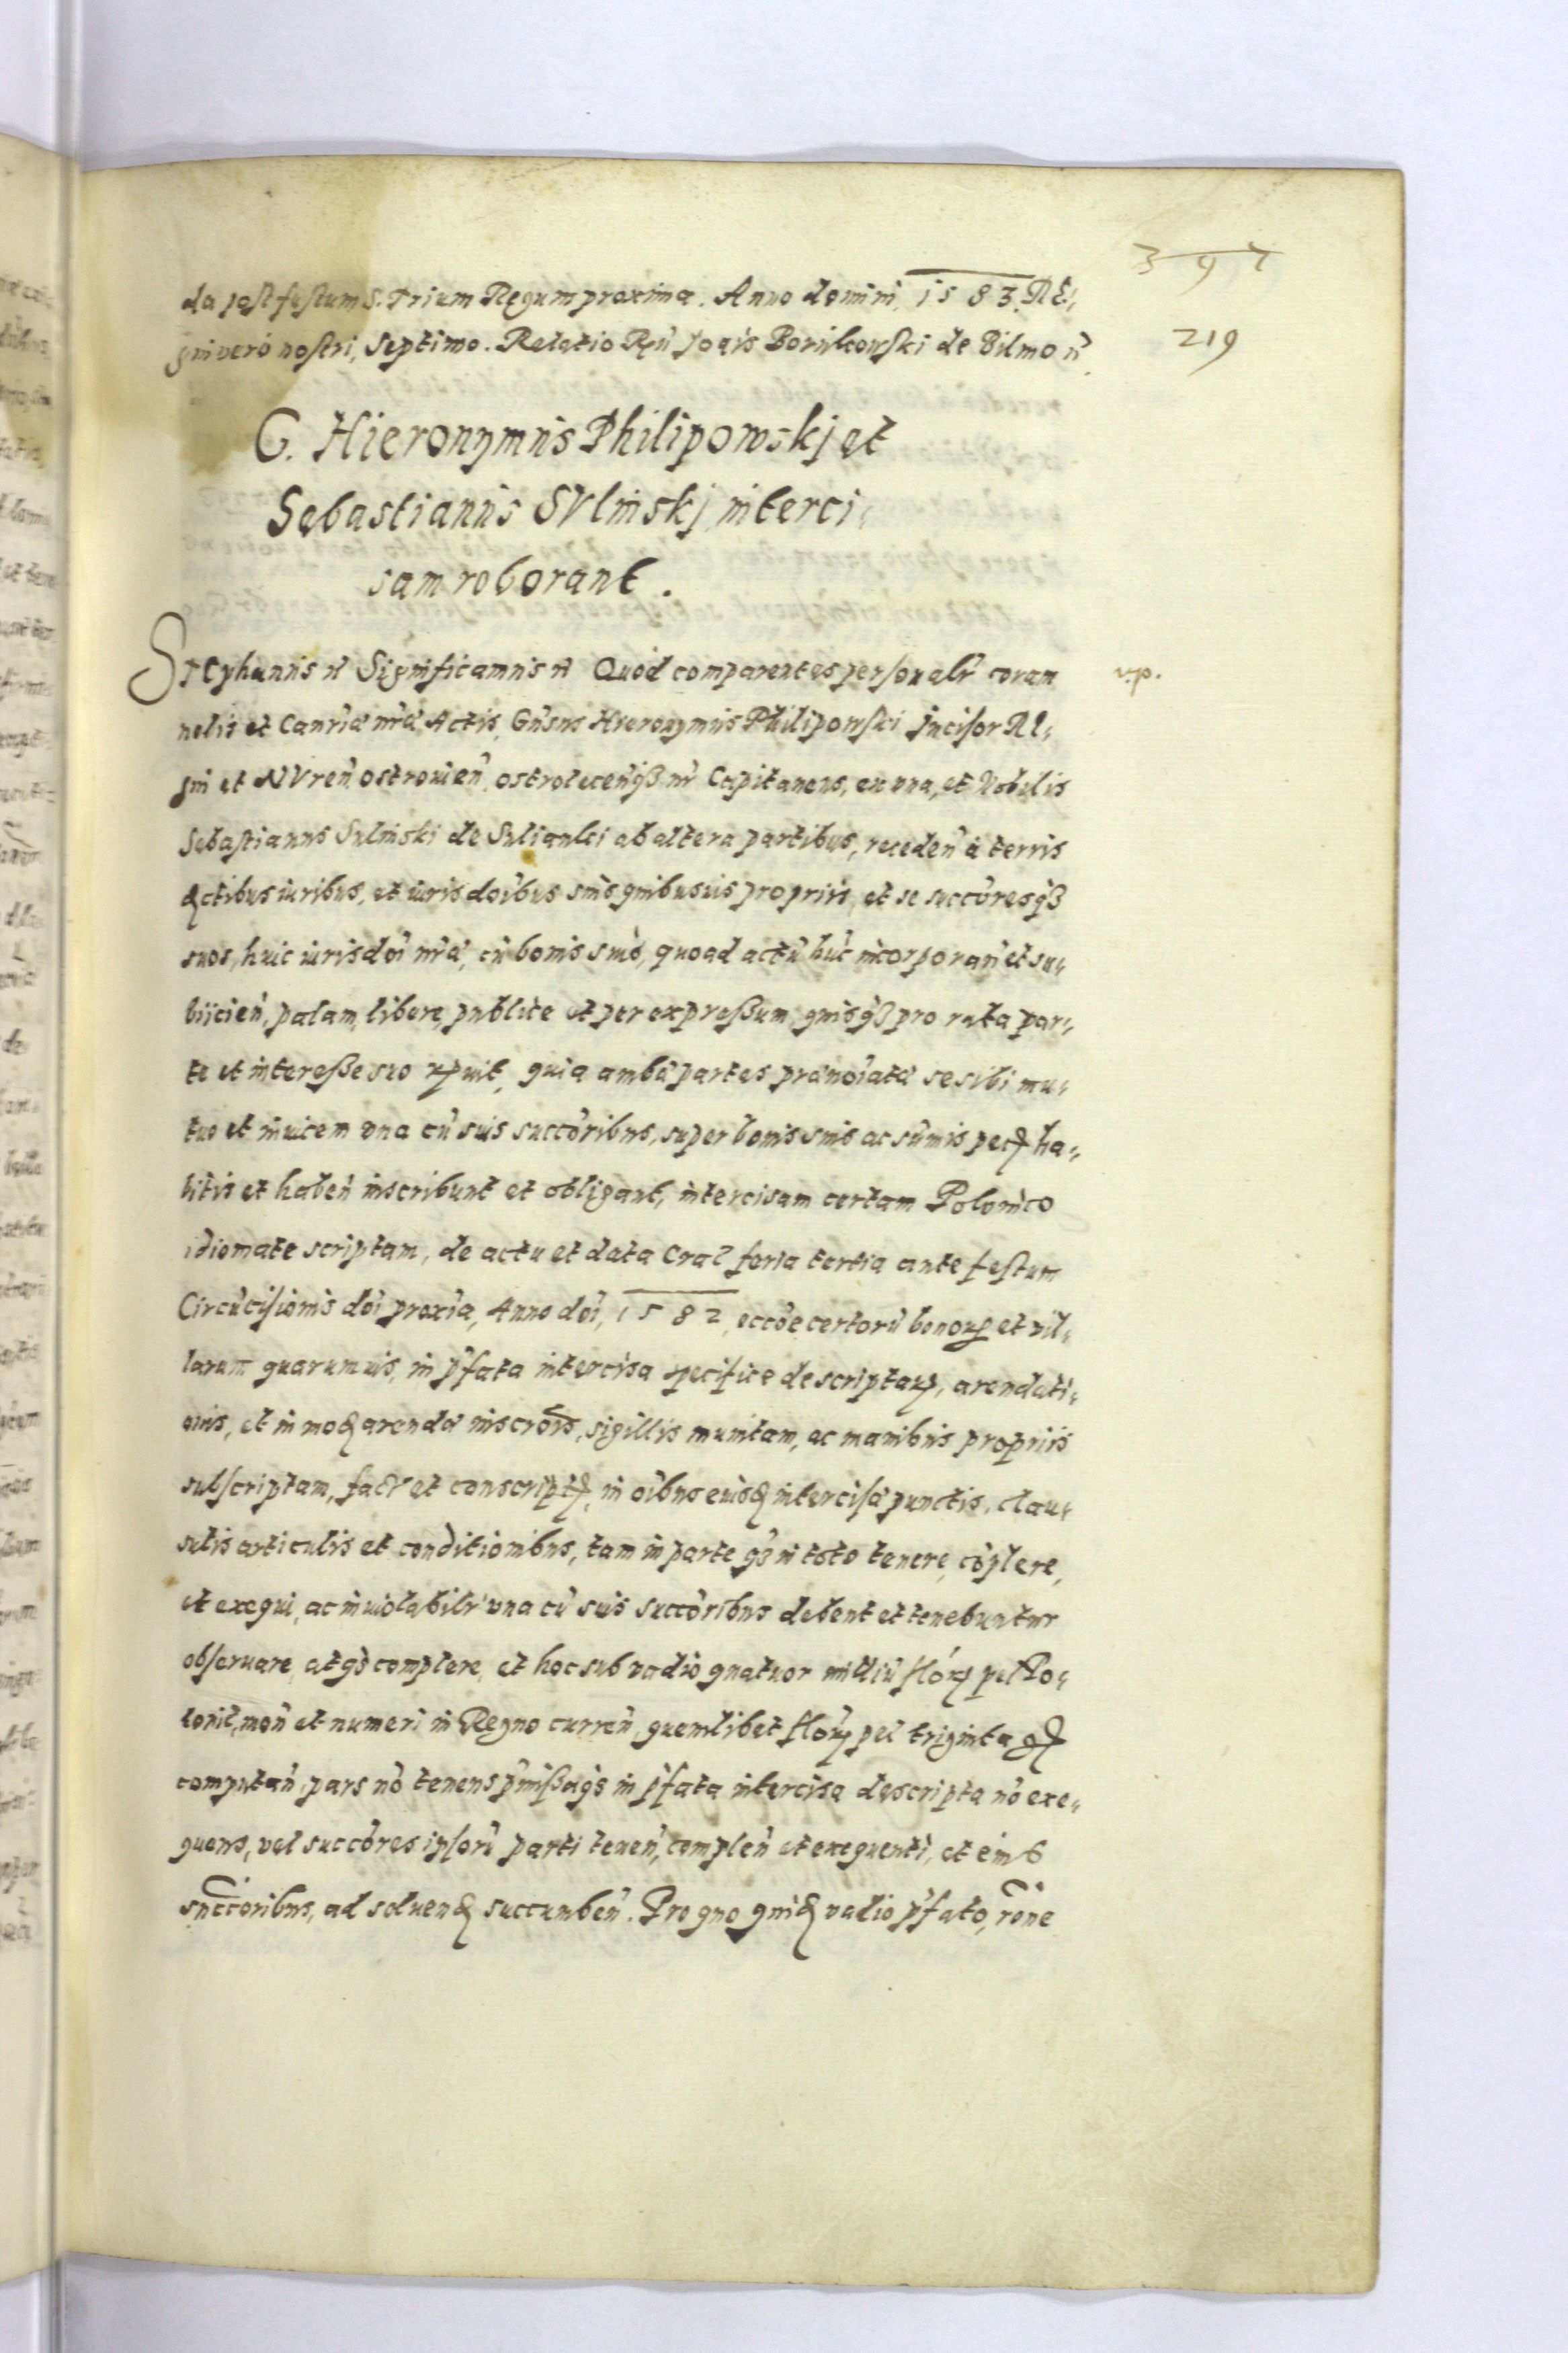 397
da post festum S. Trium Regum proxima. Anno domini, 1583. RE,
gni vero nostri, septimo. Relatio Rṇ̃ Joãis Borukowski de Bilmo ñ
219
G. Hieronymus Philipowskj et
Sebastianus SVlinskj, interci,
sam roborant.
Stephanus ꝛc Significamus ꝛc Quod comparentes personalr̃ coram
v.p.
nobis et Canc̃ria nr̃a Actis, Gñsus Hieronymus Philipowski Incisor Re,
gni et NVreñ, ostrouieñ, ostroleceñqȝ nr̃ Capitaneus, ex vna, et Nobilis
Sebastianus Sulinski de Sulianki ab altera partibus, recedeñ à terris
Dctibus iuribus, et iurisdoĩbus suis quibusuis proprijs, et se succõresqȝ
suos, huic iurisdoĩ nr̃æ, cũ bonis suis, quoad actũ hũc incorporañ et su,
bijcieñ, palam, libere, publice et per expreßum, quisqȝ pro rata par,
te et intereße suo rṗuit, quia ambæ partes prænoĩatæ se sibi mu,
tuo et inuicem vna cũ suis succõribus, super bonis suis ac sũmis pecꝝ ha,
bitis et habeñ inscribunt et obligant, intercisam certam Polonico
idiomate scriptam, de actu et data Crac̃ feria tertia ante festum
Circũcisionis doĩ proxĩa, Anno doĩ, 1582, occõe certorũ bonoꝝ et vil,
larum quarumuis, in p̃fata intercisa specifice descriptaꝝ, arendati,
onis, et in modꝫ arendæ inscrõis, sigillis munitam, ac manibus proprijs
subscriptam, factꝫ et conscriptꝫ, in oĩbus eiusdꝫ intercisæ punctis, clau,
sulis articulis et conditionibus, tam in parte qȝ in toto tenere, cõplere,
et exequi, ac inuiolabilr̃ vna cũ suis succõribus debent et tenebuntur
obseruare, atqȝ complere, et hoc sub vadio quatuor milliũ flõꝝ pel Po,
lonic̃, moñ et numeri in Regno curreñ, quemlibet flõꝝ pel triginta gꝝ
computañ, pars nõ tenens p̃mißaqȝ in p̃fata intercisa descripta nõ exe,
quens, vel succõres ipsorũ parti teneñ, compleñ et exequenti, et eius
succc̃oribus, ad soluendꝫ succumbeñ. Pro quo quidꝫ vadio p̃fato, rõne